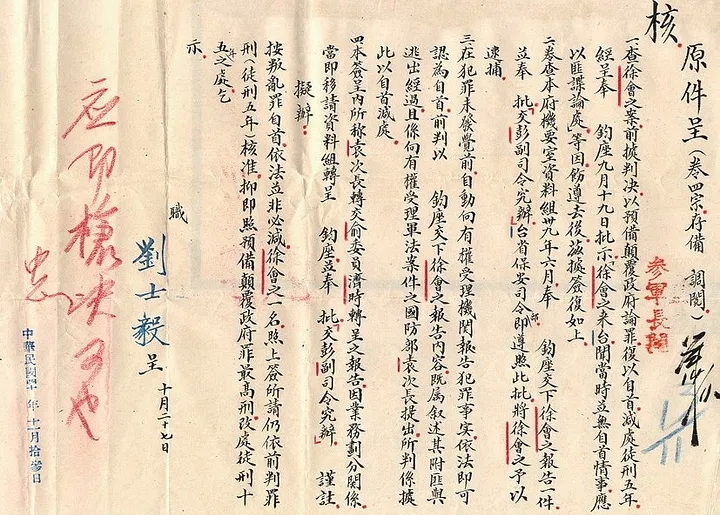 核
原件呈（卷四宗存備　調閱）
參軍長閱
一查徐會之案前據判決以預備顛覆政府論罪復以自首減處徒刑五年
經呈奉　鈞座九月十九日批示徐會之來台開當時並無自首情事應
以匪諜論處等因飭遵去後茲據簽復如上
二卷查本府機要室資料組卅九年六月奉　鈞座交下徐會之報告一件
並奉　批交彭副司令究辦台省保安司令部即遵照此批將徐會之予以
逮捕
三在犯罪未發覺前自動向有權受理機関報告犯罪事実依法即可
認為自首前判以　鈞座交下徐會之報告內容既属叙述其附匪與
逃出經過且係向有權受理軍法案件之國防部袁次長提出所判係據
此以自首減處
四本簽呈內所称袁次長轉交俞委員濟時轉呈之報告因業務劃分関係
當即移請資料組轉呈　鈞座並奉　批交彭副司令究辦　謹註
擬辦：
按叛亂罪自首依法並非必減徐會之一名照上簽所請仍依前判罪
刑（徒刑五年）核准抑即照預備顛覆政府罪最高刑改處徒刑十
五年之處乞
示
職　劉士毅呈　十月二十七日
應即槍決可也
中華民國卅　年十一月拾參日